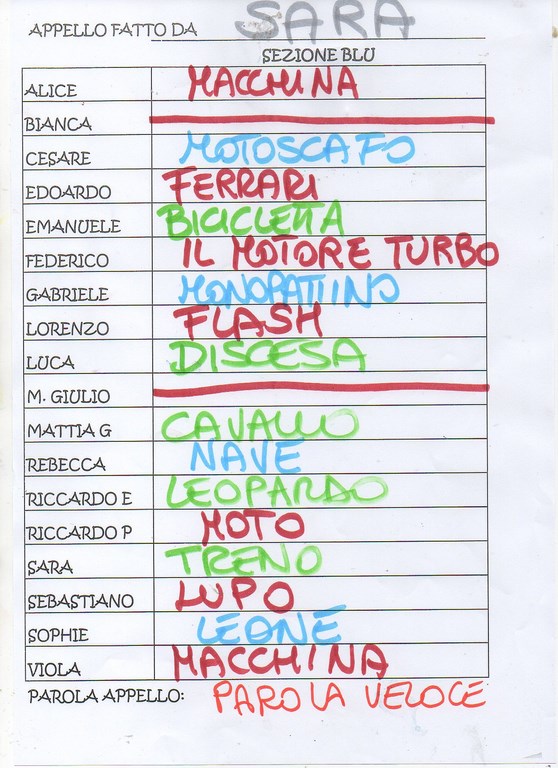 APPELLO FATTO DA SARA
SEZIONE BLU
ALICE MACCHINA
BIANCA
CESARE MOTOSCAFO
EDOARDO FERRARI
EMANUELE BICICLETTA
FEDERICO IL MOTORE TURBO
GABRIELE MONOPATTINO
LORENZO FLASH
LUCA DISCESA
M. GIULIO
MATTIA G CAVALLO
REBECCA NAVE
RICCARDO E LEOPARDO
RICCARDO P MOTO
SARA TRENO
SEBASTIANO LUPO
SOPHIE LEONE
VIOLA MACCHINA
PAROLA APPELLO: PAROLA VELOCE